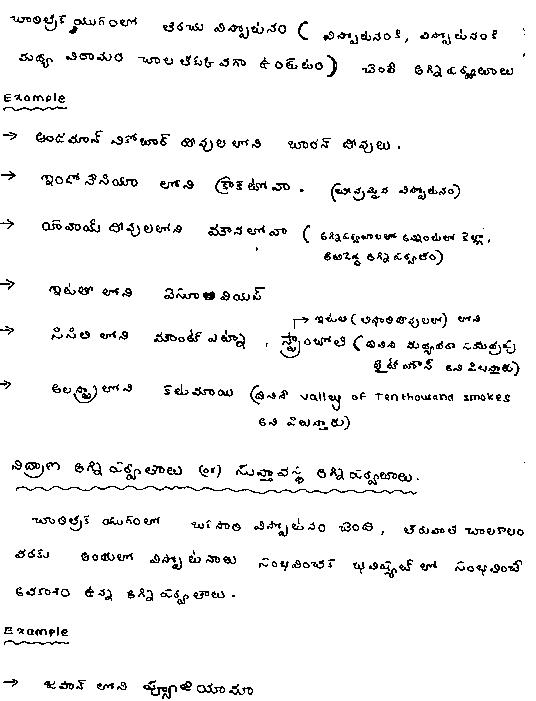 చారిత్రక యుగంలో తరచు విస్ఫోటనం ( విస్ఫోటనంకి, విస్ఫోటనంకి
మధ్య విరామం చాల తక్కువగా ఉంటుటం) చెందే అగ్నిపర్వతాలు
Example
→ అండమాన్ నికోబార్ దీవుల లోని బారన్ దీవులు.
→ ఇండోనేసియా లోని క్రాకటోవా. (చివ్రమైన విస్ఫోటనం)
→ హవాయ్ దీవులలోని మౌనాలోవా ( అగ్నిపర్వతాలలో అన్నింటిలో కెల్లా,
అతిపెద్ద అగ్నిపర్వతం)
→ ఇటలీ లోని వెసూవియస్
→ సిసిలీ లోని మౌంట్ ఎట్నా , స్ట్రాంబోలి → ఇటలీ (లిపారి దీవులలో) లోని (దీనిని మధ్యధరా సముద్రపు
లైట్ హౌస్ అని పిలుస్తారు)
→ అలస్కా లోని కట్మాయి (దీనిని valley of Tenthousand smokes
అని పిలుస్తారు)
నిద్రాణ అగ్నిపర్వతాలు (or) సుప్తావస్థ అగ్నిపర్వతాలు.
చారిత్రక యుగంలో ఒకసారి విస్ఫోటనం చెంది, తరువాత చాలకాలం
వరకు అందులో విస్ఫోటనాలు సంభవించక భవిష్యత్ లో సంభవించే
అవకాశం ఉన్న అగ్నిపర్వతాలు.
Example
→ జపాన్ లోని ఫ్యూజియామా